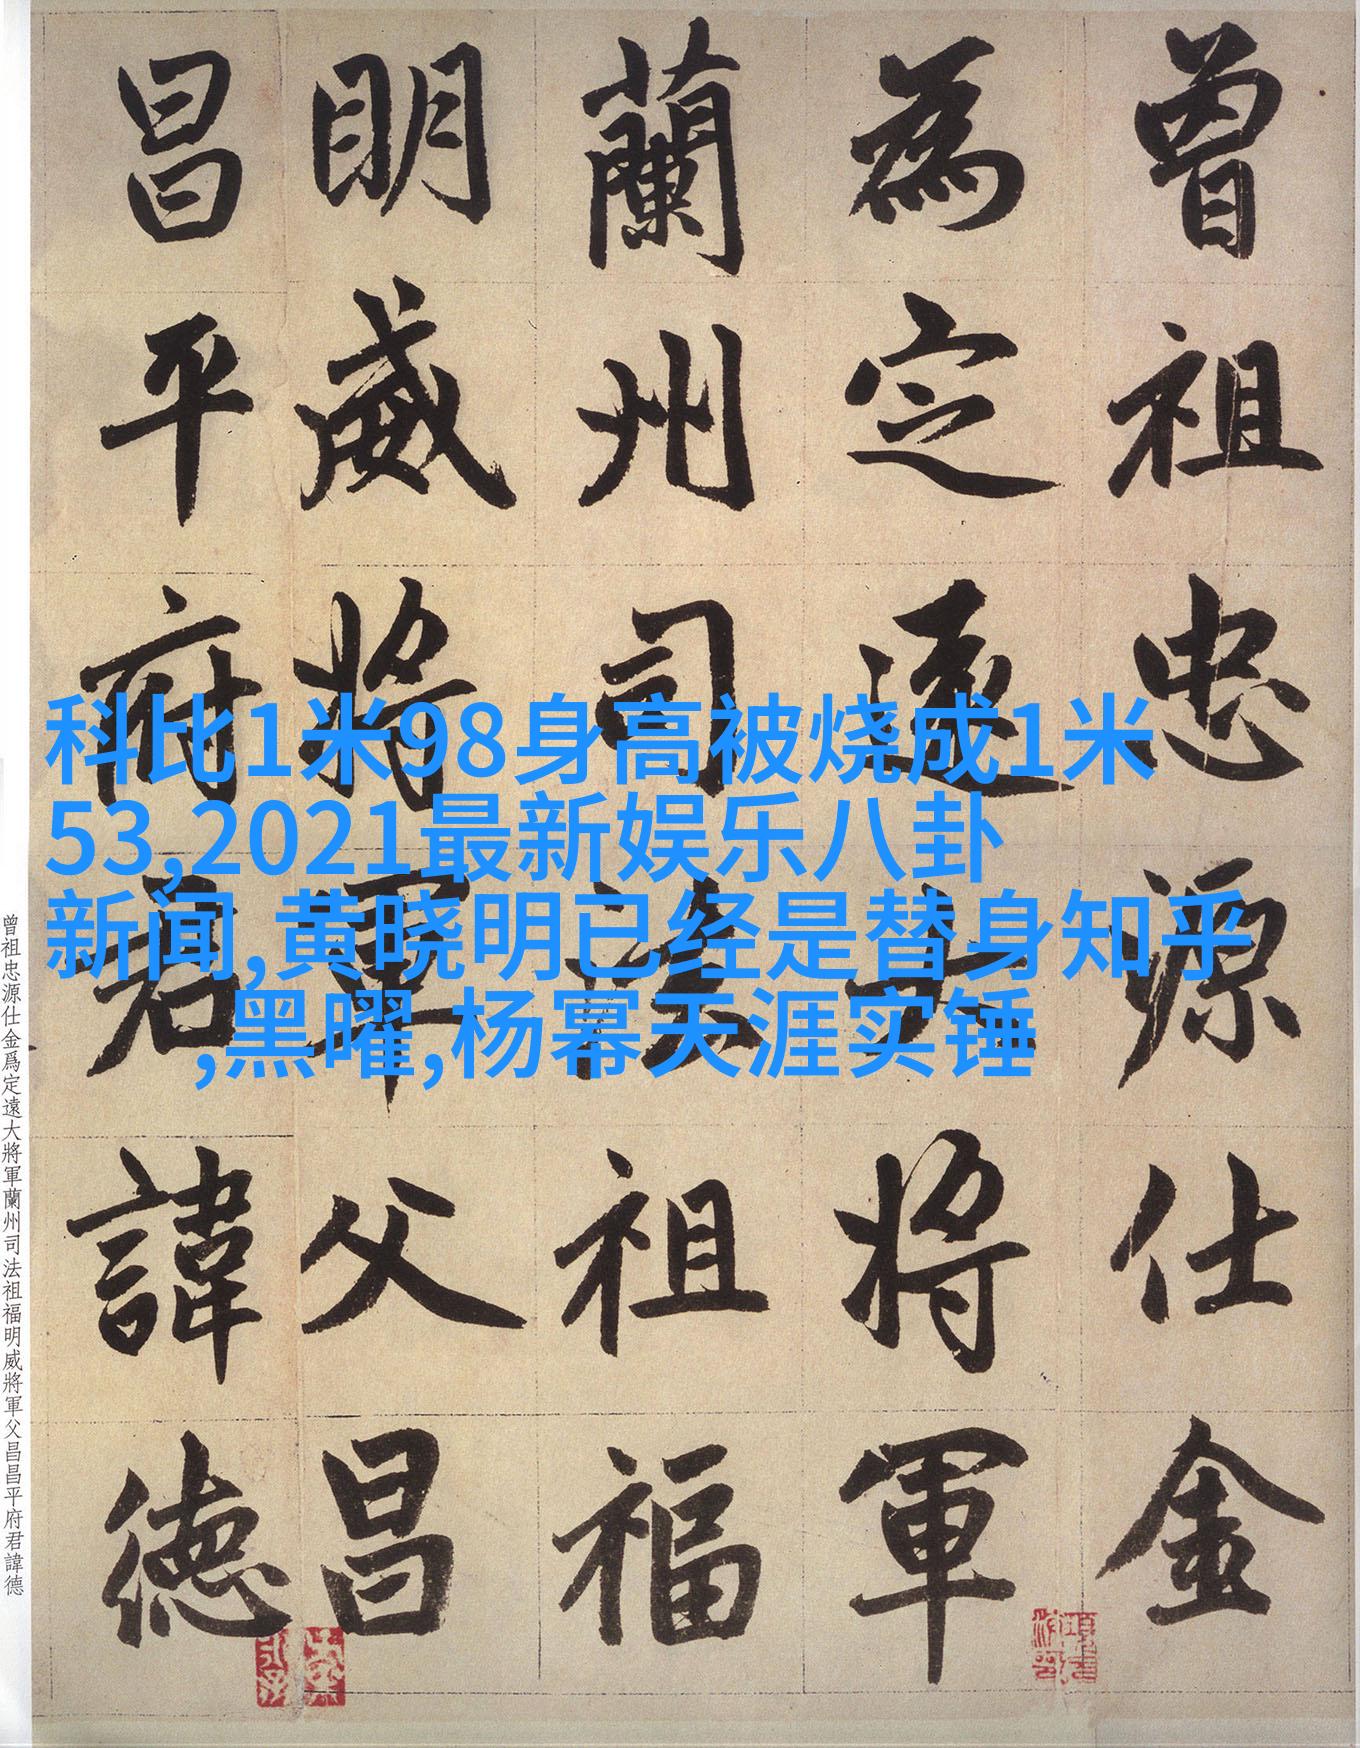 曾祖忠源仕金
為定遠大將軍
蘭州司法祖福
明威將軍父昌
昌平府君諱德
科比1米98身高被烧成1米
53,2021最新娱乐八卦
新闻,黄晓明已经是替身知乎
,黑曜,杨幂天涯实锤
曾祖忠源仕金爲定遠大將軍蘭州司法祖福明威將軍父昌昌平府君諱德